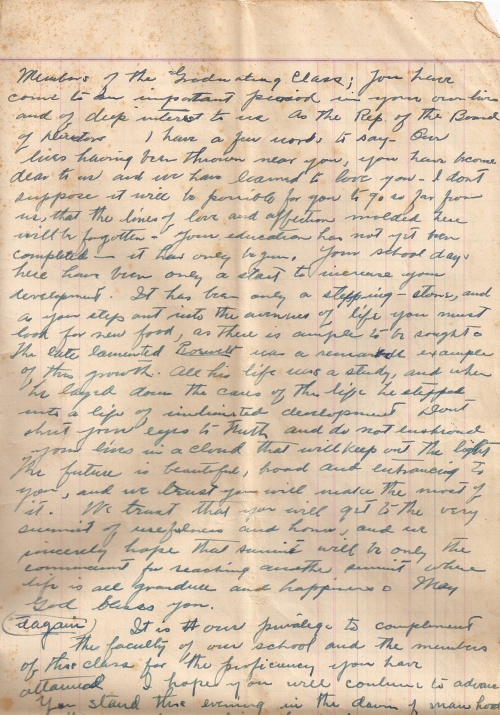 Members of the Graduating Class; You have
come to an important period in your own lives
and of deep interest to us As the Rep of the Board
of Directors I have a few words to say - Our
lives having been thrown near you, you have become
dear to us and we have learned to love you - I don't
suppose it will be possible for you to go so far from
us, that the lines of love and affection molded here
will be forgotten - Your education has not yet been
completed - it has only begun. Your school days
here have been only a start to increase your
development. It has been only a stepping-stone, and
as your step out into the avenues of life you must
look for new food, as there is ample to be sought.
The late lamented was a example
of this growth. All his life was a study, and when
he layed down the cares of this life he stepped
into a life of unlimited development Don't
shut your eyes to Truth and do not enshroud
your lives in a cloud that will keep out the light
The future is beautiful, broad and entrancing to
you, and we trust you will make the most of
it. We trust that you will get to the very
summit of usefulness and honor, and we
sincerely hope that summit will be only the
for reaching another summit where
life is all grandeur and happiness. May
God bless you.
(again) It is our privilege to complement
the faculty of our school and the members
of this class for the proficiency you have
attained I hope you will continue to advance
You stand this evening in the dawn of man hood